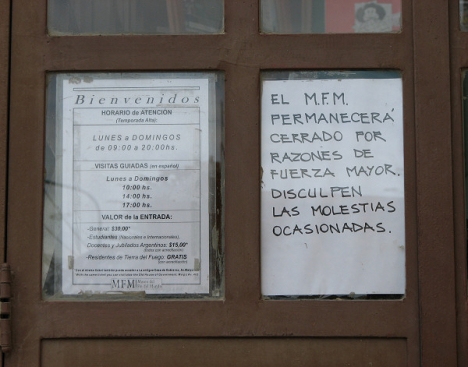 Bienvenidos
HORARIO de ATENCIÓN
(Temporada Alta)
LUNES a DOMINGOS
de 09:00 a 20:00hs.
VISITAS GUIADAS (en español)
Lunes a Domingos
10:00 hs.
14:00 hs.
17:00 hs.
VALOR de la ENTRADA:
-General:
-Estudiantes (Nacionales e Internacionales)
-Docentes y Jubilados Argentinos: $15,00*
-Residentes de Tierra del Fuego: GRATIS
MFM
EL M.F.M.
PERMANECERÁ
CERRADO POR
RAZONES DE
FUERZA MAYOR.
DISCULPEN
LAS MOLESTIAS
OCASIONADAS.